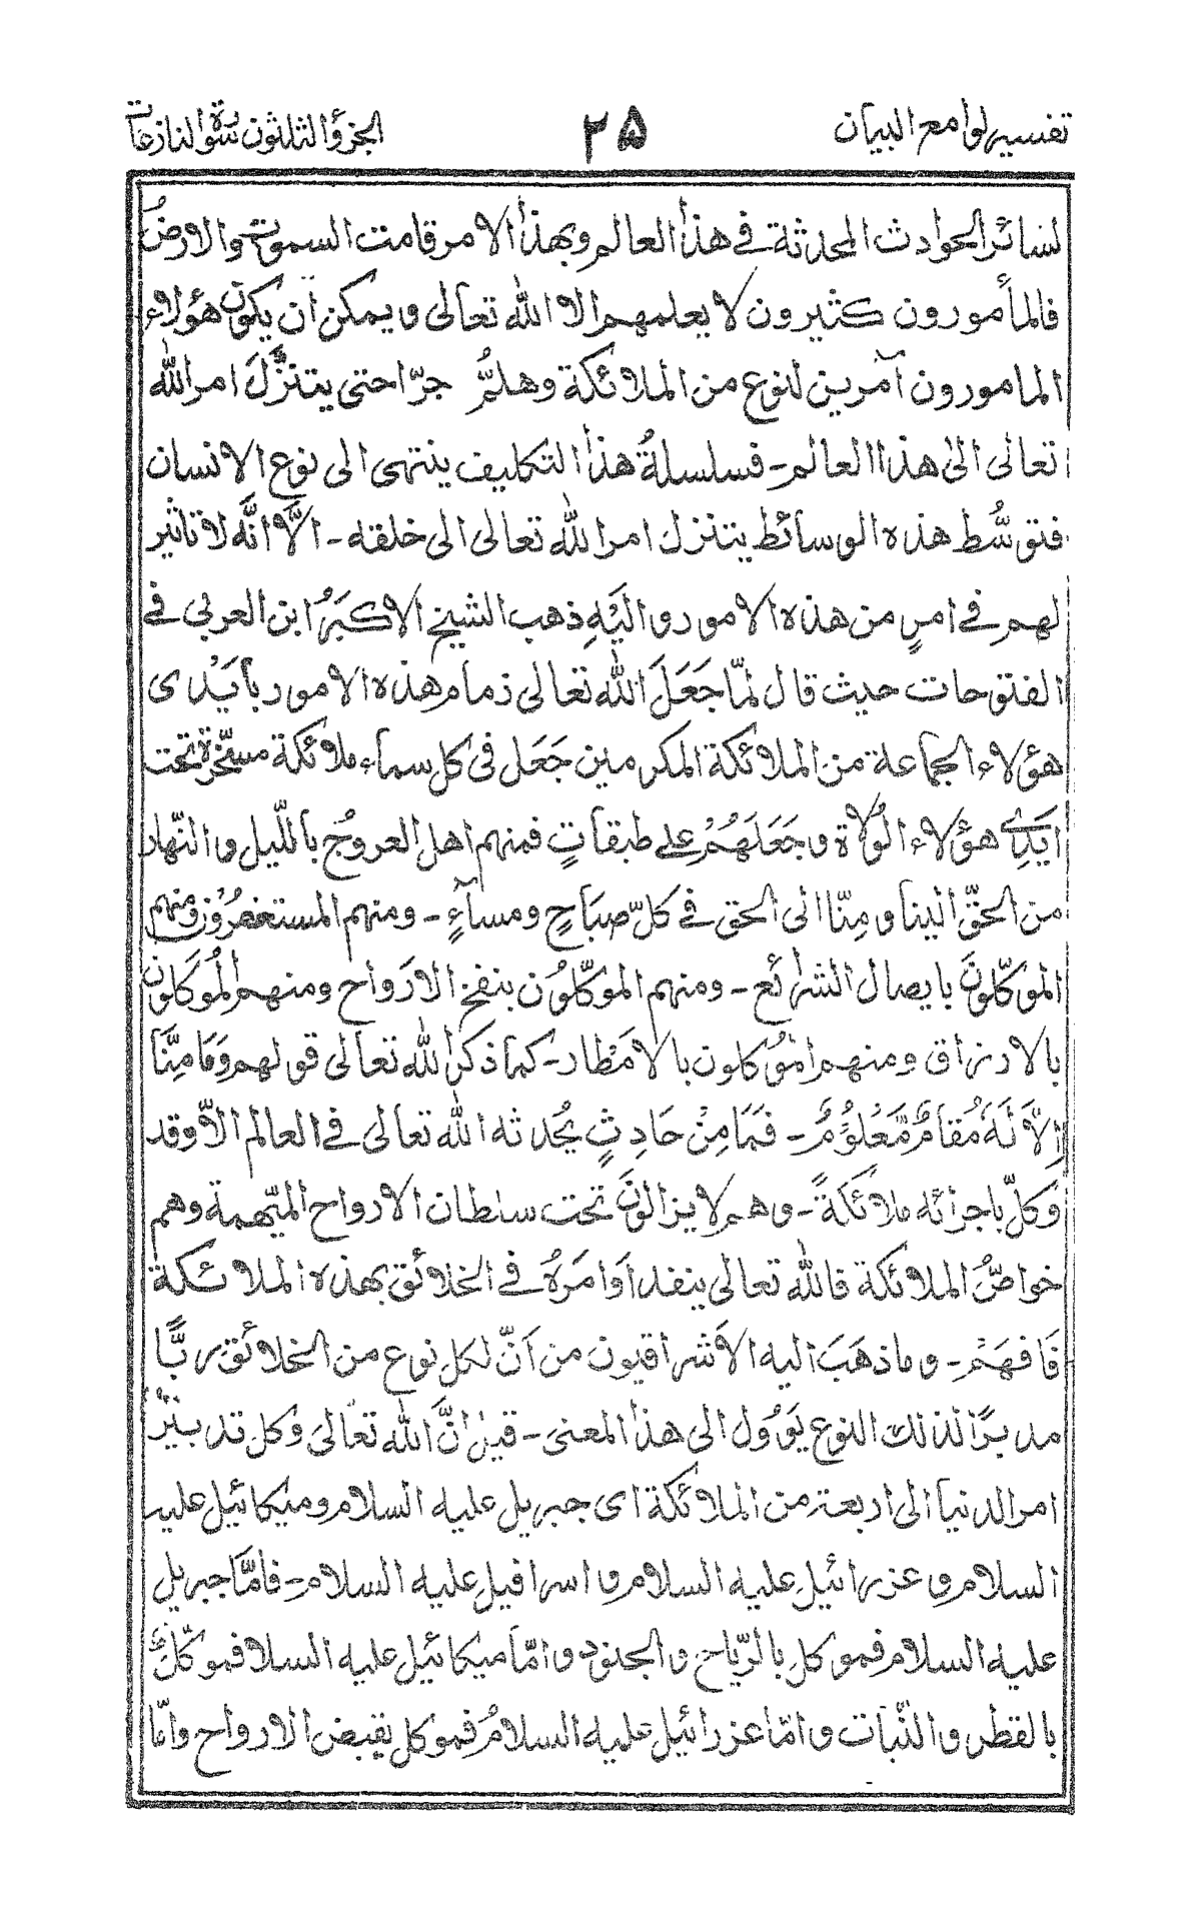 تفسير لوامع البيان
٢٥
الجزؤ الثلثون سورة النازعات
لسائر الحوادث المحدثة في هذا العالم وبهذا الامر قامت السموت والارضُ
فالمأمورون كثيرون لا يعلمهم الا الله تعالى ويمكن ان يكون هؤلاء
المامورون آمرين لنوع من الملائكة وهلمُّ جرّا حتى يتنزَّلَ امر الله
تعالى الى هذا العالم - فسلسلةُ هذا التكليف ينتهى الى نوع الانسان
فتوسُّط هذه الوسائط يتنزل امر الله تعالى الى خلقه - الَّا انَّه لا تاثير
لهم في امرٍ من هذه الامور واليَهِ ذهب الشيخ الاكبَرُ ابن العربي في
الفتوحات حيث قال لمّا جَعَلَ الله تعالى زمام هذه الامور بأيَدى
هؤلاء الجماعة من الملائكة المكرمين جَعَل فى كل سماء ملائكة مسخّرة تحت
ايَدِى هؤلاء الوُلاة وجَعَلَهُمْ على طبقاتٍ فمنهم اهل العروجُ بالليل والنّهار
من الحقّ الينا ومِنّا الى الحق في كلّ صبَاحٍ ومسآءٍ - ومنهم المستغفرُون ومنهم
الموَكّلوَن بايصال الشرائع - ومنهم الموكّلوُن بنفخ الارَواح ومنهم الموُكلون
بالارزاق ومنهم الموُكلون بالامَطار - كما ذكر الله تعالى قولهم وَمَا مِنَّا
اِلَّا لَهٗ مُقَامٌ مَّعْلُوْمٌ - فمَا مِنْ حَادِثٍ يُحدثه الله تعالى في العالم الاَّ وقد
وَكلّ باجرائه ملائكةً - وهم لا يزالون تحت سلطان الارواح المتّهمة وهم
خواصُّ الملائكة فالله تعالى ينفد اَوامَرهُ في الخلائق بهذه الملائكة
فَافهَمْ - وما ذهَبَ اليه الاَشراقيون من اَنّ لكل نوع من الخلائق ربًّا
مدبرًا لذلك النوع يَؤُول الى هذا المعنى - قيل انَّ الله تعَالىَ وَكل تدبيرُ
امر الدنيا الى اربعة من الملائكة اى جبريل عليه السلام وميكائيل عليه
السلام و عزرائيل عليه السلام و اسرافيل عليه السلام - فامَّا جبريل
عليه السلام فموكل بالرّياح والجنود و امّا ميكائيل عليه السلا فموكّلٌ
بالقطر والنّبات و امّا عزرائيل عليه السلامُ فموكل بقبض الارواح وامّا